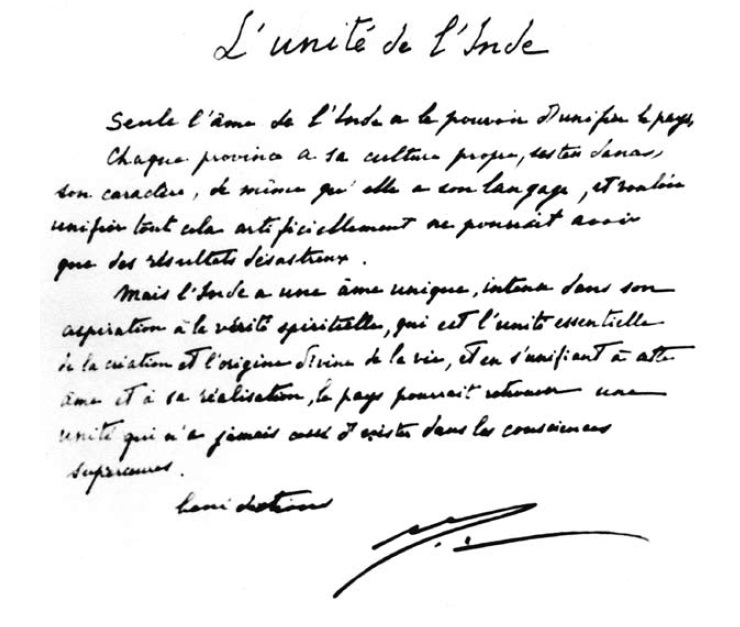 L'unité de l'Inde
Seule l'âme de l'Inde a le pouvoir d'unifier le pays.
Chaque province a sa culture propre, ses tendances,
son caractère, de même qu'elle a son langage, et vouloir
unifier tout cela artificiellement ne pourrait avoir
que des résultats désastreux.
Mais l'Inde a une âme unique, intense dans son
aspiration à la vérité spirituelle, qui est l'unité essentielle
de la création et l'origine divine de la vie, et en s'unifiant à cette
âme et à sa réalisation, le pays pourrait retrouver une
unité qui n'a jamais cessé d'exister dans les consciences
supérieures.
bénédictions